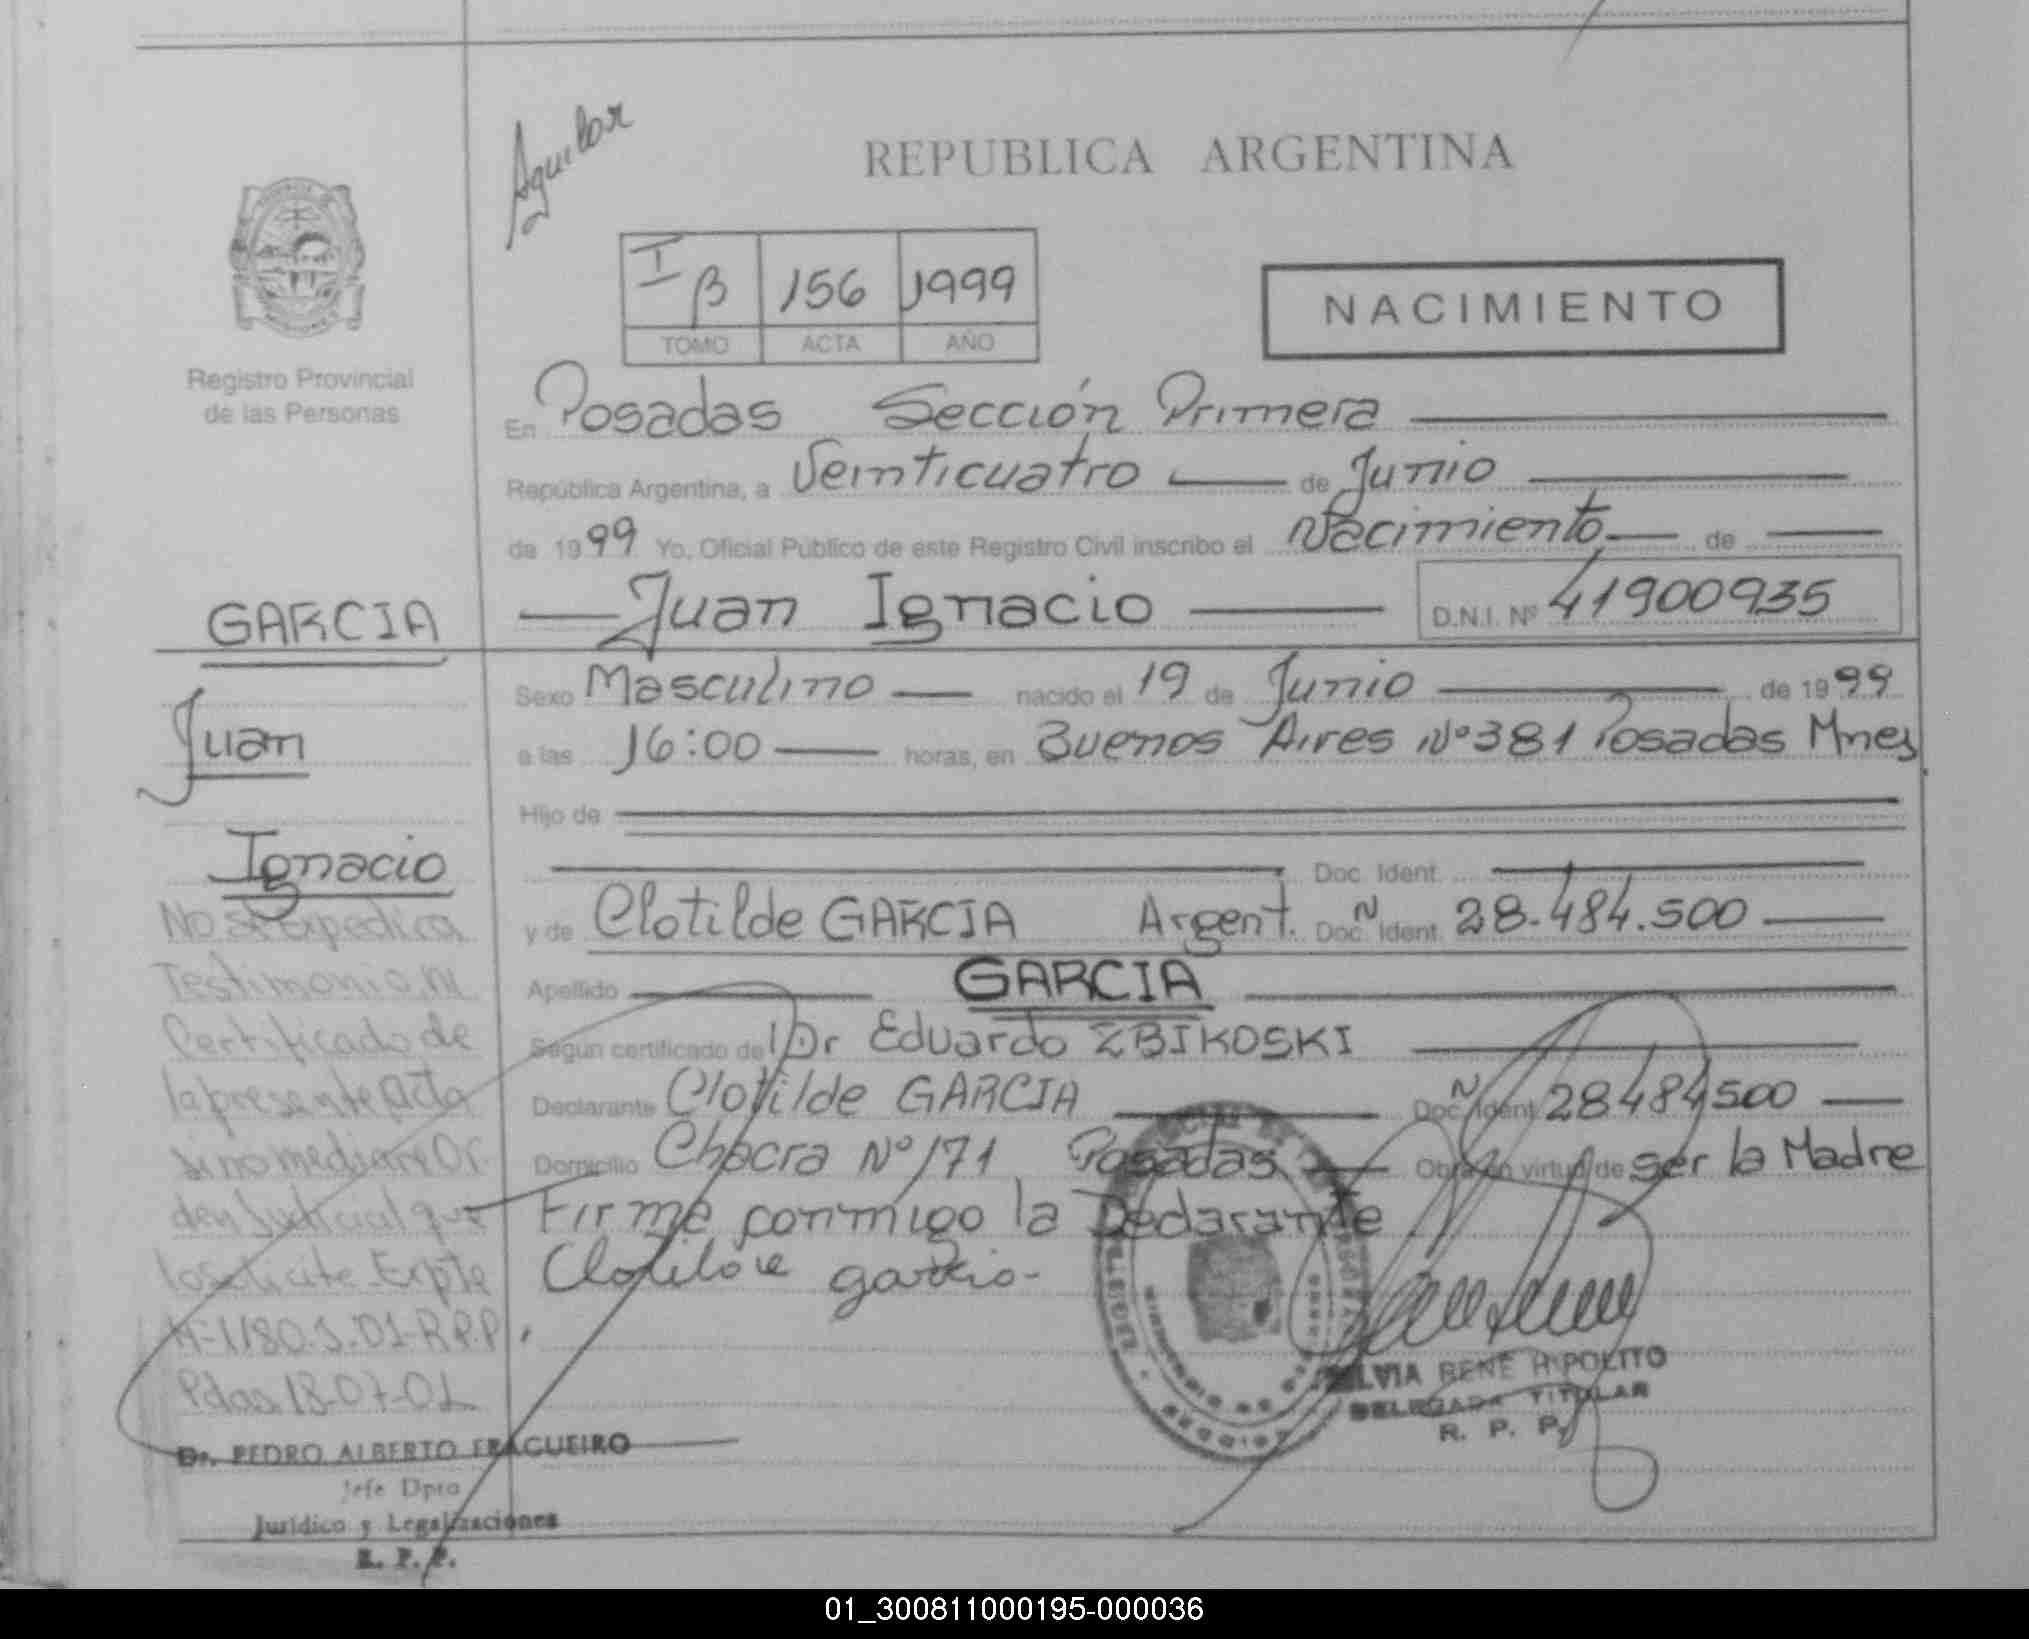 Aguilar
REPUBLICA ARGENTINA
I B 156 1999
TOMO ACTA AÑO
NACIMIENTO
Registro Provincial
de las Personas
En Posadas Sección Primera
República Argentina, a Veinticuatro de Junio
de 1999 Yo, Oficial Público de este Registro Civil inscribo el Nacimiento de
Juan Ignacio D.N.I. Nº 41900935
GARCIA
Juan
Ignacio
Sexo Masculino nacido el 19 de Junio de 1999
a las 16:00 horas, en Buenos Aires Nº 381 Posadas Mnes
Hijo de
Doc. Ident.
y de Clotilde GARCIA Argent. Doc. N Ident. 28.484.500
Apellido GARCIA
Según certificado de Dr Eduardo ZBIKOSKI
Declarante Clotilde GARCIA Doc. N Ident. 28484500
Domicilio Chacra Nº 171 Posadas Obra en virtud de ser la Madre
Firma conmigo la Declarante
Clotilde garcia.
No se Expedira
Testimonio, ni
Certificado de
la presente Acta
si no mediare Or
den Judicial que
lo solicite. Expte
Nº 1180.J.01-R.P.P.
Pdas. 18-07-01
Dr. PEDRO ALBERTO FRAGUEIRO
Jefe Dpto
Jurídico y Legalizaciones
R. P. P.
SILVIA RENE HIPOLITO
DELEGADA TITULAR
R. P. P.
01_300811000195-000036